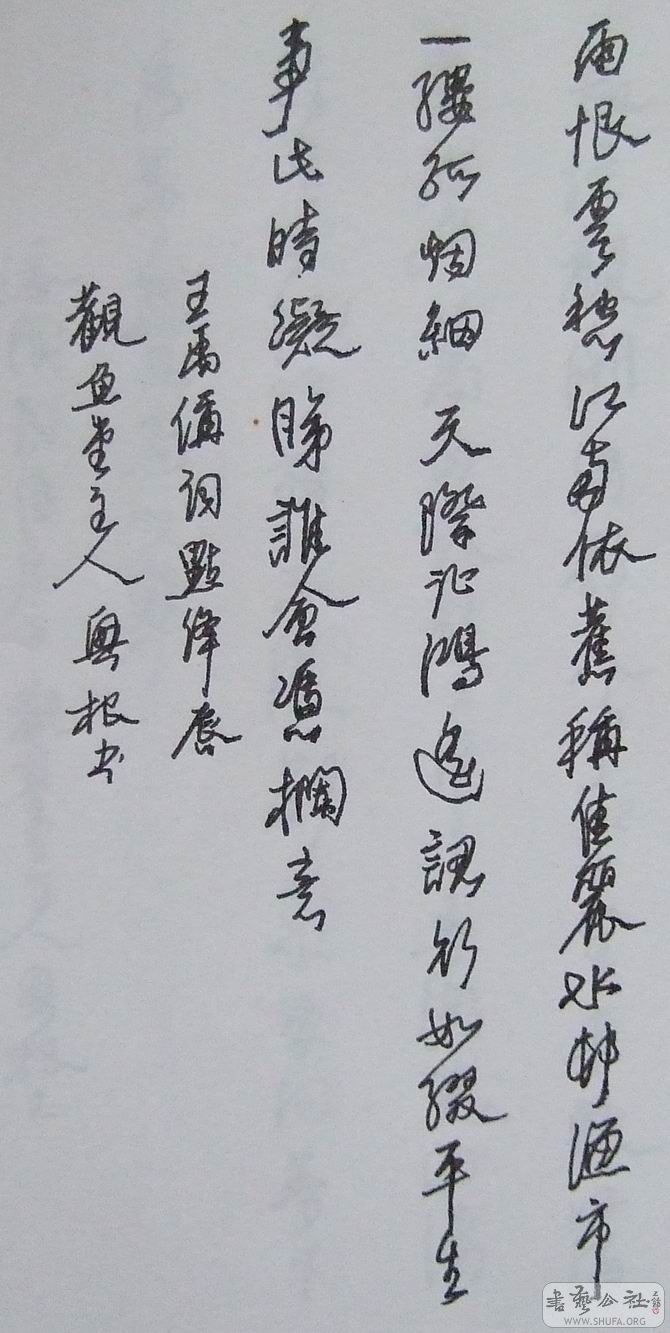 雨恨雲愁江南依舊稱佳麗水邨漁市
一縷孤烟細天際征鴻遙認行如綴平生
事此時凝睇誰會憑欄意
王禹偁詞點絳唇
觀魚堂主人興根书
書藝公社
WWW.SHUFA.ORG